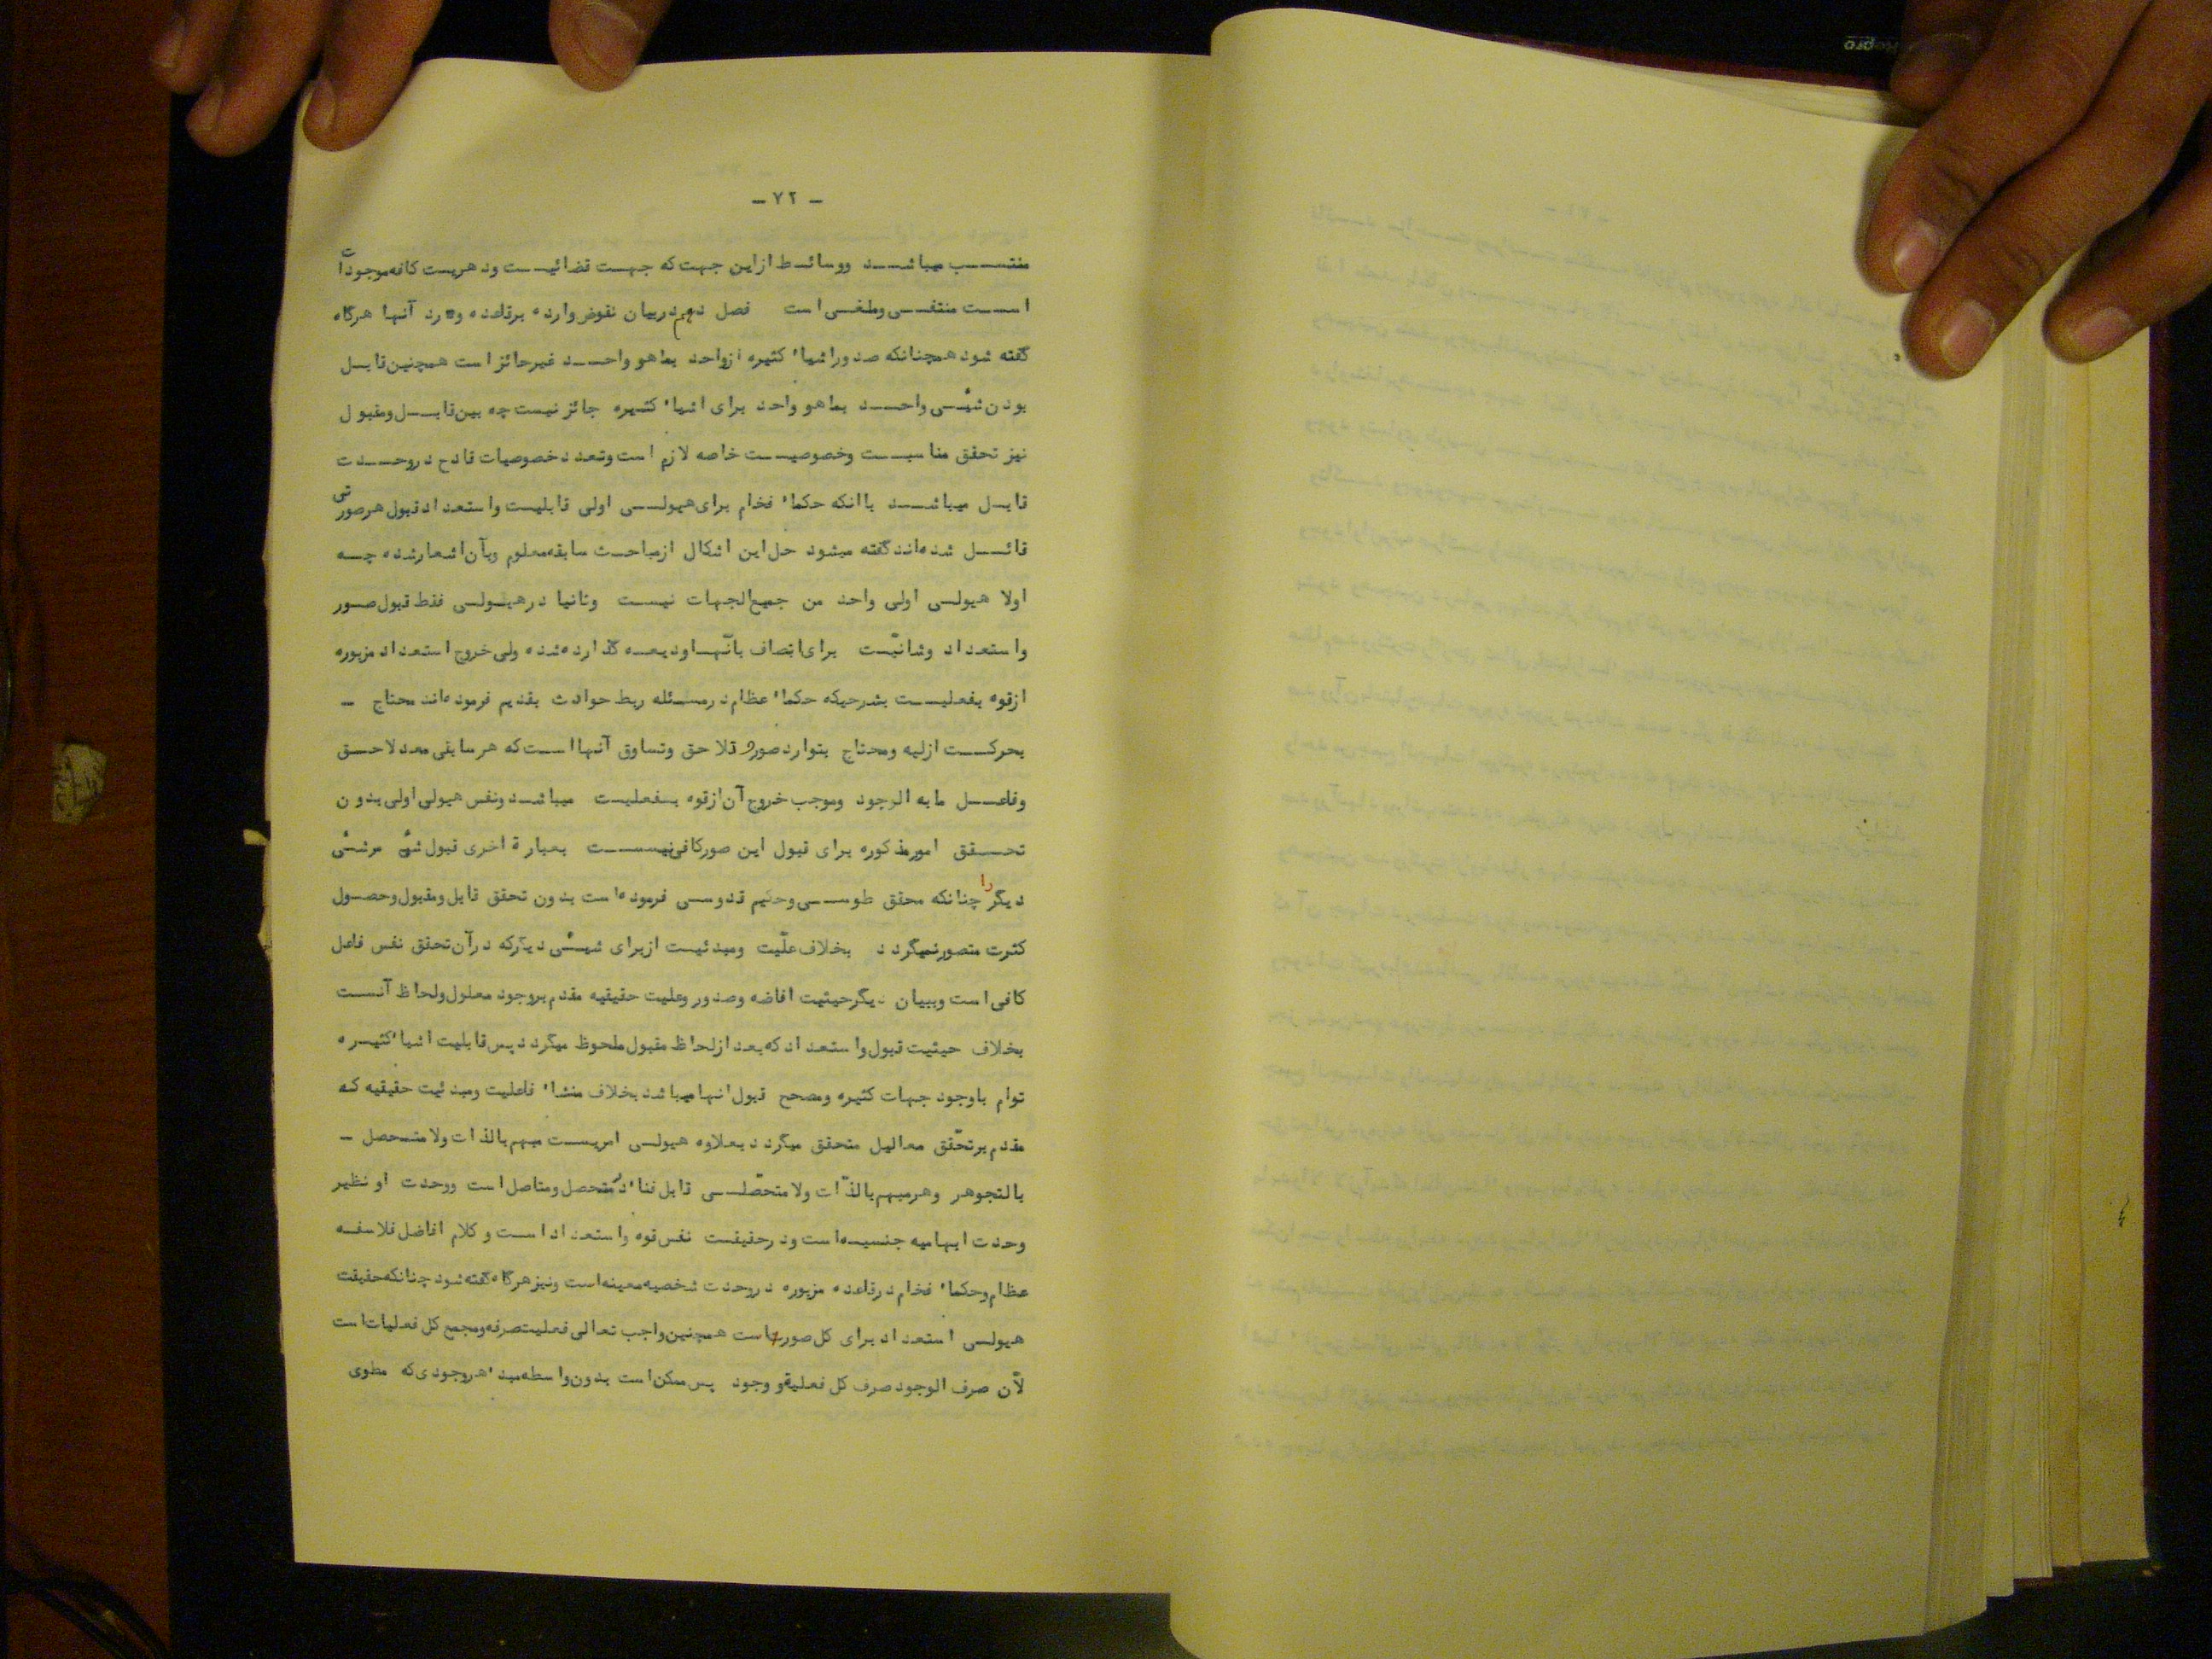 - ۷۲ -
منتسب میباشد ووسائط ازاین جهت که جهت قضائیست ودهریست کافه موجودات
است منتفی ومطفی است فصل دهم دربیان نقوض وارده برقاعده ورد آنها هرگاه
گفته شود همچنانکه صدور اشیاء کثیره ازواحد بماهو واحد غیرجائز است همچنین قابل
بودن شیئی واحد بماهو واحد برای اشیاء کثیره جائز نیست چه بین قابل ومقبول
نیز تحقق مناسبت وخصوصیت خاصه لازم است وتعدد خصوصیات قادح دروحدت
قابل میباشد باانکه حکماء فخام برای هیولی اولی قابلیت واستعداد قبول هرصورتی
قائل شده‌اند گفته میشود حل این اشکال ازمباحث سابقه معلوم وبآن اشعارشده چه
اولا هیولی اولی واحد من جمیع الجهات نیست وثانیا درهیولی فقط قبول صور
واستعداد وشانیّت برای اتصاف بانّها ودیعه گذارده شده ولی خروج استعداد مزبوره
ازقوه بفعلیت بشرحیکه حکماء عظام درمسئله ربط حوادث بقدیم فرموده‌اند محتاج -
بحرکت ازلیه ومحتاج بتوارد صور و تلاحق وتساوق آنها است که هرسابقی معد لاحق
وفاعل مابه الوجود وموجب خروج آن ازقوه بفعلیت میباشد ونفس هیولی اولی بدون
تحقق امورمذکوره برای قبول این صورکافی نیست بعبارة اخری قبول شیئی مرشیئی
دیگر را چنانکه محقق طوسی وحکیم قدوسی فرموده است بدون تحقق قابل ومقبول وحصول
کثرت متصورنمیگردد بخلاف علّیت ومبدئیت ازبرای شیئی دیگرکه درآن تحقق نفس فاعل
کافی است وببیان دیگرحیثیت افاضه وصدور وعلیت حقیقیه مقدم بروجود معلول ولحاظ آنست
بخلاف حیثیت قبول واستعداد که بعد ازلحاظ مقبول ملحوظ میگردد پس قابلیت اشیاء کثیره
توام باوجود جهات کثیره ومصحح قبول انها میباشد بخلاف منشاء فاعلیت ومبدئیت حقیقیه که
مقدم برتحّقق معالیل متحقق میگردد بعلاوه هیولی امریست مبهم بالذات ولامتحصل -
بالتجوهر وهرمبهم بالذّات ولامتحصّلی قابل فناء در متحصل ومتاصل است ووحدت او نظیر
وحدت ابهامیه جنسیه است ودرحقیقت نفس قوه واستعداد است و کلام افاضل فلاسفه
عظام وحکماء فخام درقاعده مزبوره دروحدت شخصیه معینه است ونیز هرگاه گفته شود چنانکه حقیقت
هیولی استعداد برای کل صور است همچنین واجب تعالی فعلیت صرفه ومجمع کل فعلیات است
لأن صرف الوجود صرف کل فعلیة و وجود پس ممکن است بدون واسطه مبدء هروجودی که مطوی